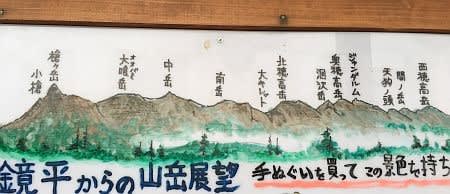 小槍
槍ヶ岳
大喰岳
オオバミ
中岳
南岳
大キレット
北穂高岳
涸沢岳
奥穂高岳
ジャンダルム
天狗ノ頭
間ノ岳
西穂高岳
鏡平からの山岳展望
手ぬぐいを買ってこの景色を持ち